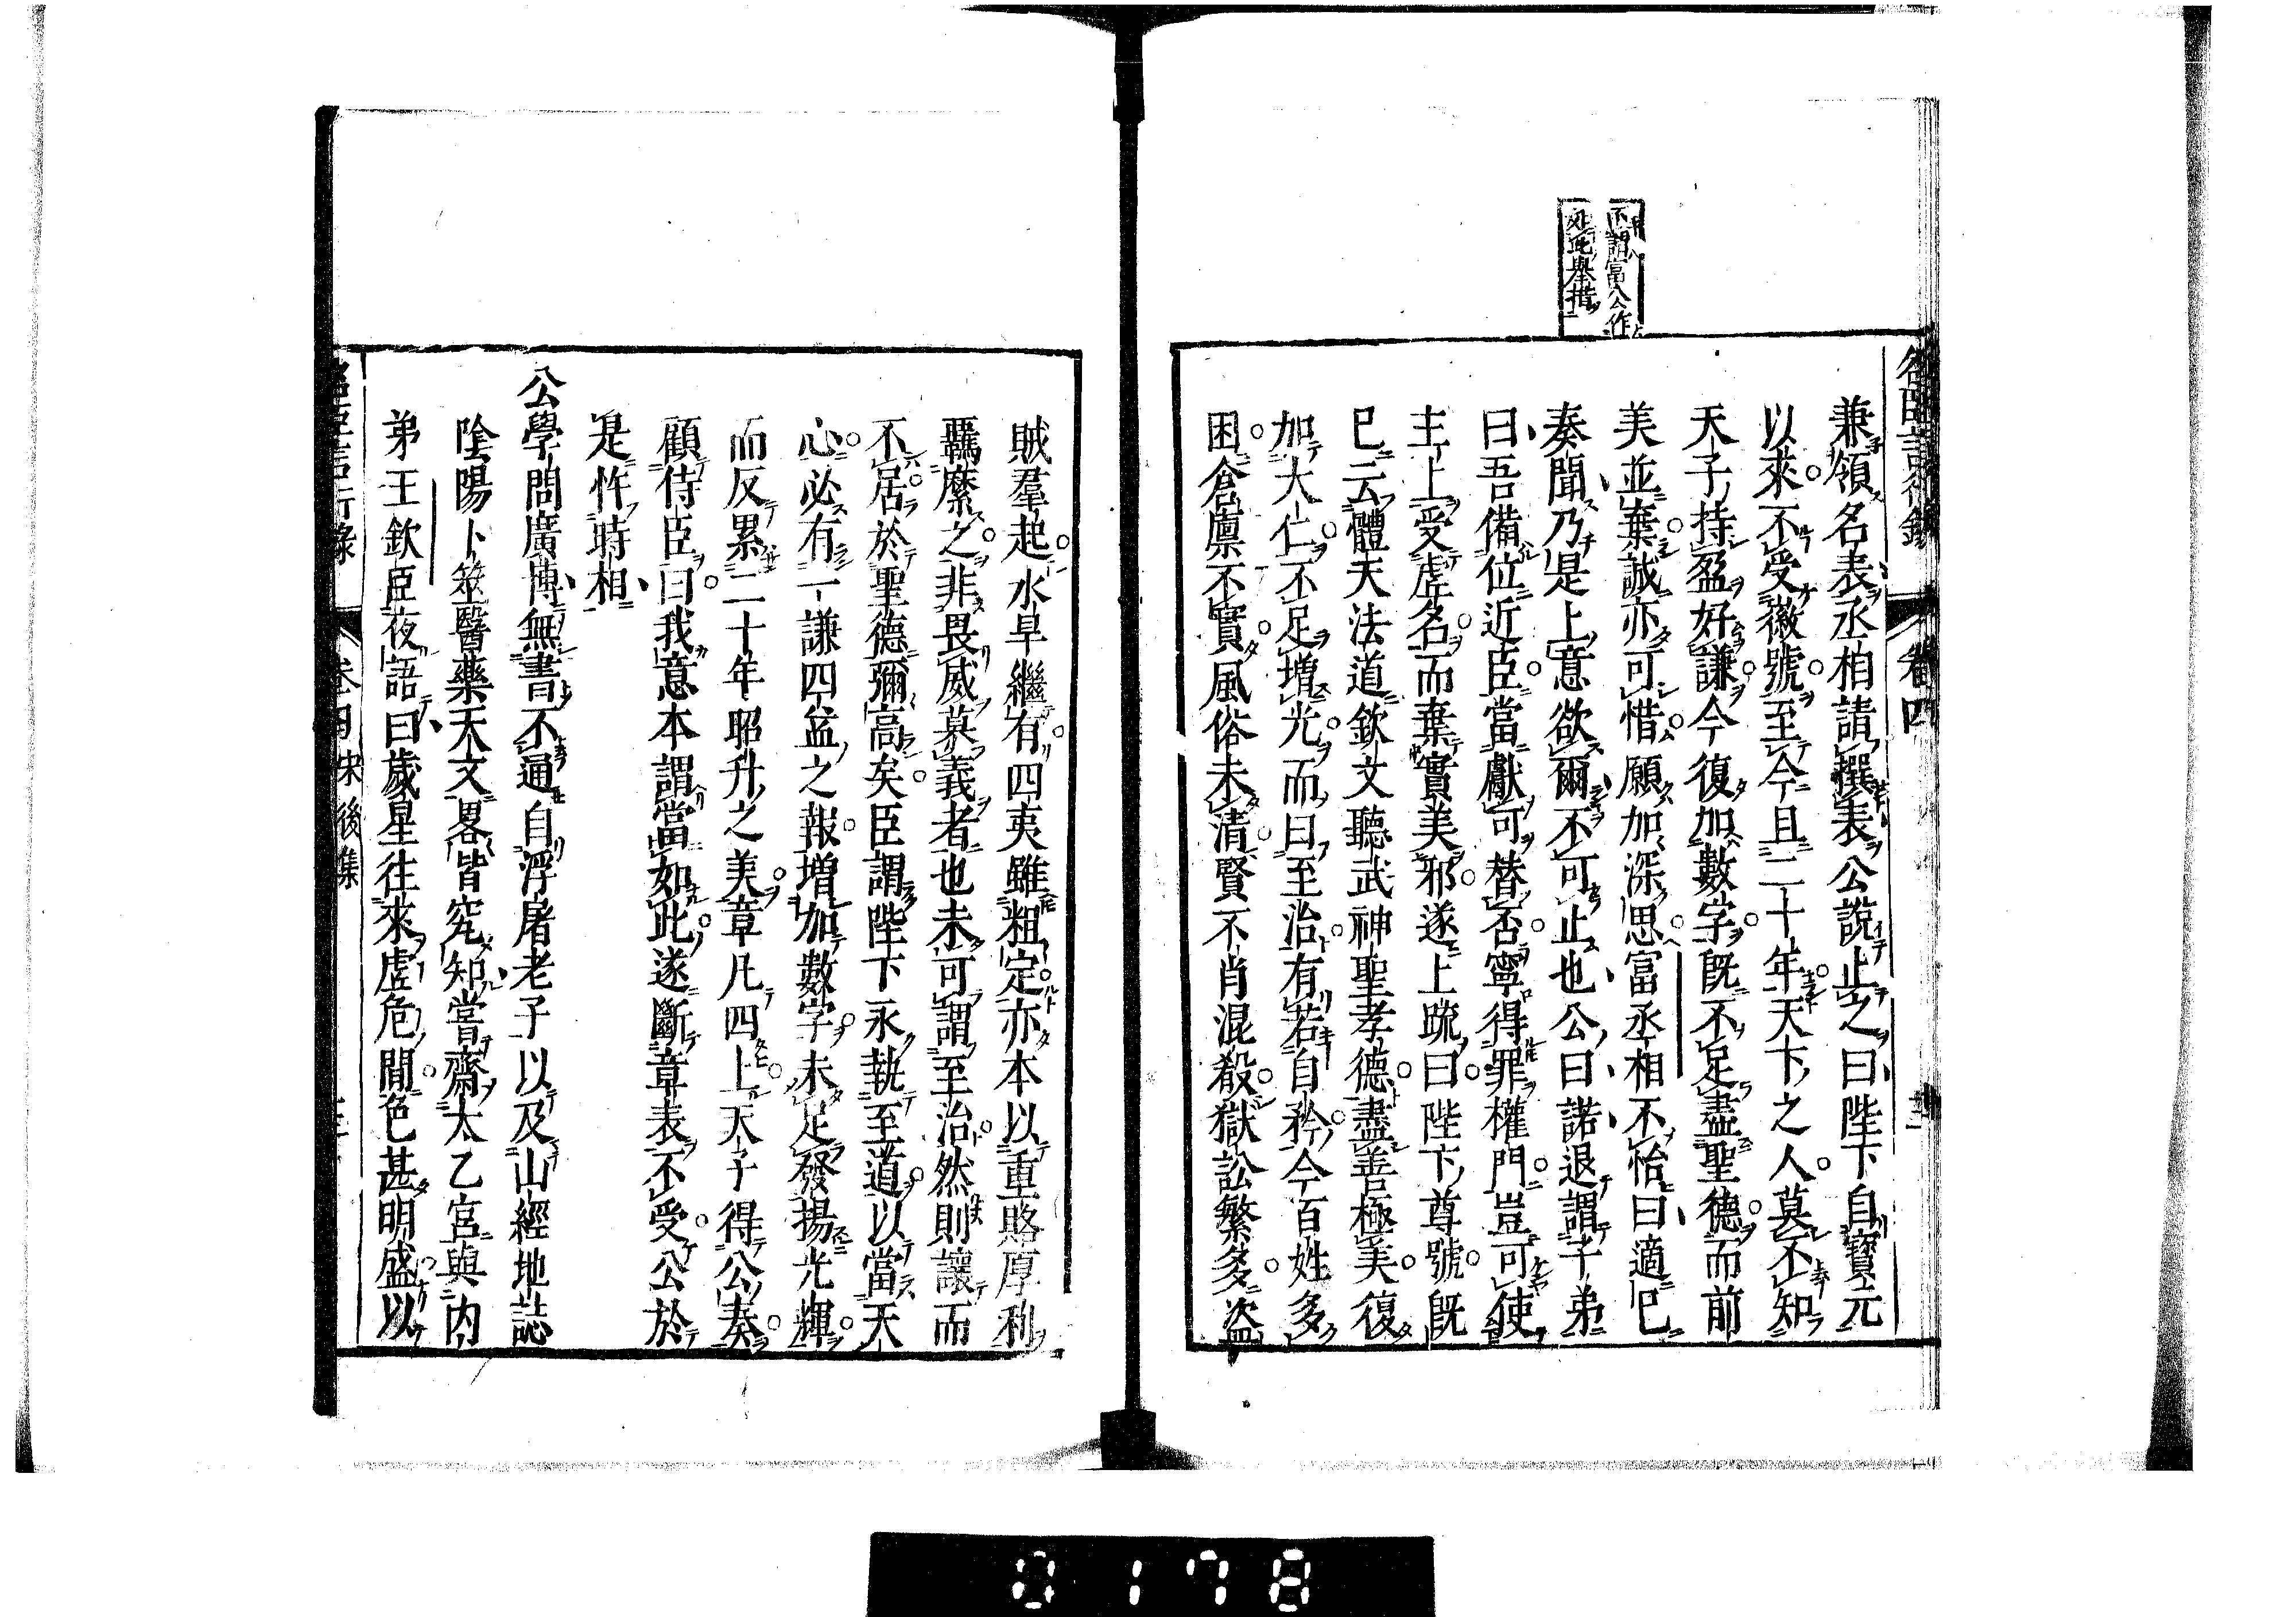 不謂富公作
如此舉措
名臣言行錄　卷四
兼領名表丞相請撰表公說止之曰陛下自寶元
以來不受徽號至今且二十年天下之人莫不知
天子持盈好謙今復加數字既不足盡聖德而前
美並棄誠亦可惜願加深思富丞相不怡曰適已
奏聞乃是上意欲爾不可止也公曰諾退謂子弟
曰吾備位近臣當獻可替否寧得罪權門豈可使
主上受虛名而棄實美邪遂上疏曰陛下尊號既
已云體天法道欽文聰武神聖孝德盡善極美復
加大仁不足增光而曰至治有若自矜今百姓多
困倉廩不實風俗未清賢不肖混殽獄訟繁多盜
賊羣起水旱繼有四夷雖粗定亦本以重賂厚利
羈縻之非畏威慕義者也未可謂至治然則讓而
不居於聖德彌高矣臣謂陛下永執至道以當天
心必有一謙四益之報增加數字未足發揚光輝
而反累二十年昭升之美章凡四上天子得公奏
顧侍臣曰我意本謂當如此遂斷章表不受公於
是忤時相
公學問廣博無書不通自浮屠老子以及山經地誌
陰陽卜筮醫藥天文畧皆究知嘗齋太乙宮與內
弟王欽臣夜語曰歲星往來虛危間色甚明盛以
名臣言行錄　卷四　宋後集
0178